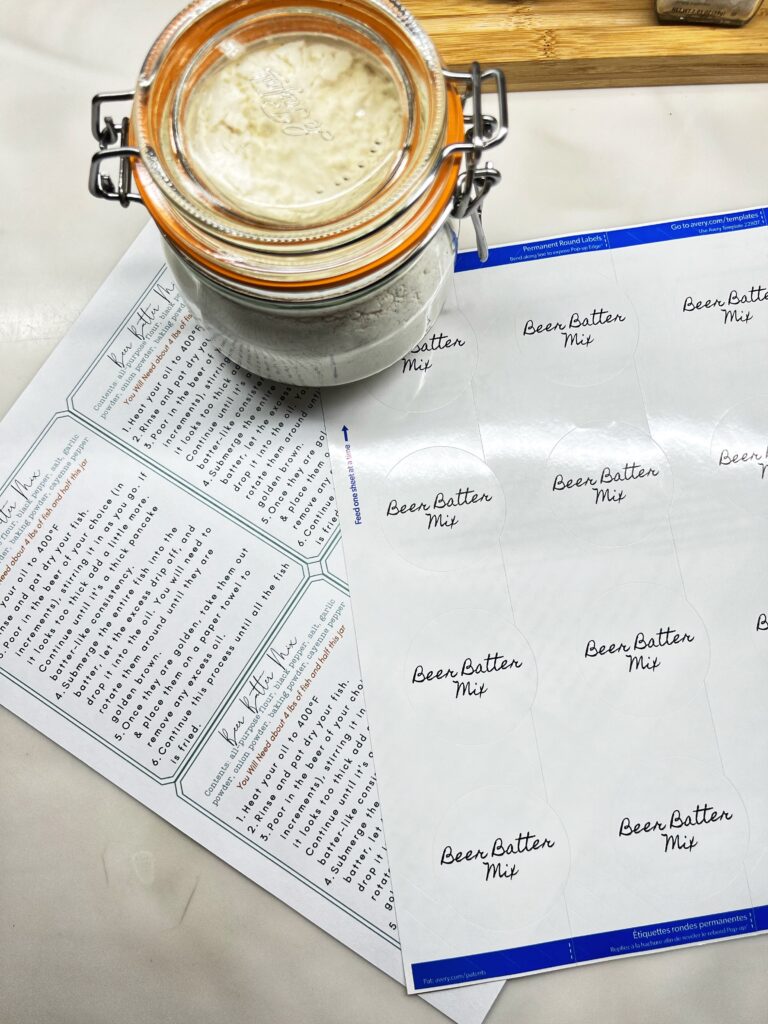 Beer Batter Mix
Contents: all-purpose flour, black pepper
powder, onion powder, baking powd
You Will Need about 4 lbs of fis
1. Heat your oil to 400°F
2. Rinse and pat dry you
3. Poor in the beer of
increments), stirring
Continue until it's
it looks too thick
batter-like cons
4. Submerge the
batter, let the excess
drop it into the oil. You
rotate them around until
golden brown.
5. Once they are gol
& Place them o
remove any
6. Continue
is fried.
Batter Mix
flour, black pepper, salt, garlic
powder, baking powder, cayenne pepper
Need about 4 lbs of fish and half this jar
your oil to 400°F
inse and pat dry your fish.
Poor in the beer of your choice (in
increments), stirring it in as you go. If
it looks too thick add a little more.
Continue until it's a thick pancake
batter-like consistency.
4. Submerge the entire fish into the
batter, let the excess drip off, and
drop it into the oil. You will need to
rotate them around until they are
golden brown.
5. Once they are golden, take them out
& Place them on a paper towel to
remove any excess oil.
6. Continue this process until all the fish
is fried.
Beer Batter Mix
Contents: all-purpose flour, black pepper, salt, garlic
powder, onion powder, baking powder, cayenne pepper
You Will Need about 4 lbs of fish and half this jar
1. Heat your oil to 400°F
2. Rinse and pat dry your fish.
3. Poor in the beer of your choi
increments), stirring it in
it looks too thick add a
Continue until it's a
batter-like consist
4. Submerge the
batter, let
drop it
rotat
go
5.
Permanent Round Labels
Bend along line to expose Pop-up Edge
Go to avery.com/templates
Use Avery Template 22807
Feed one sheet at a time
atter
Mix
Beer Batter
Mix
Beer Batte
Mix
Beer Batter
Mix
Beer Batter
Mix
Bee
Beer Batter
Mix
Beer Batter
Mix
B
Beer Batter
Mix
Beer Batter
Mix
Étiquettes rondes permanentes
Repliez à la hachure afin de révéler le rebord Pop-up
Pat: avery.com/patents